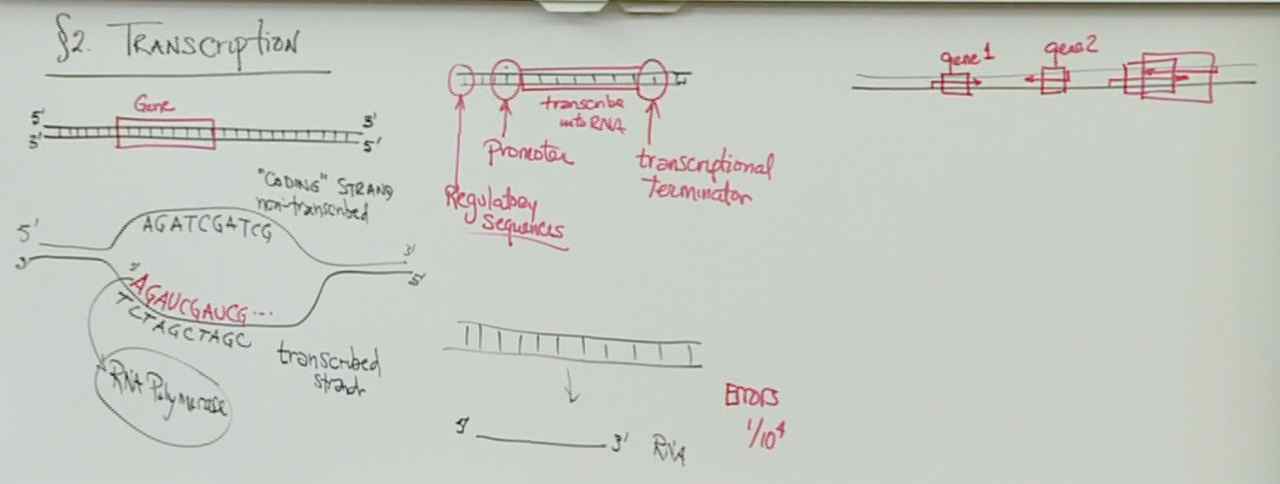 §2. TRANSCRIPTION
Gene
5' 3'
3' 5'
"CODING" STRAND
non-transcribed
AGATCGATCG
5' 3'
3' 5'
5'
AGAUCGAUCG...
TCTAGCTAGC
transcribed
strand
RNA Polymerase
transcribe
into RNA
Promoter
transcriptional
terminator
Regulatory
Sequences
5' 3' RNA
Errors
1/10⁴
gene 1
gene 2